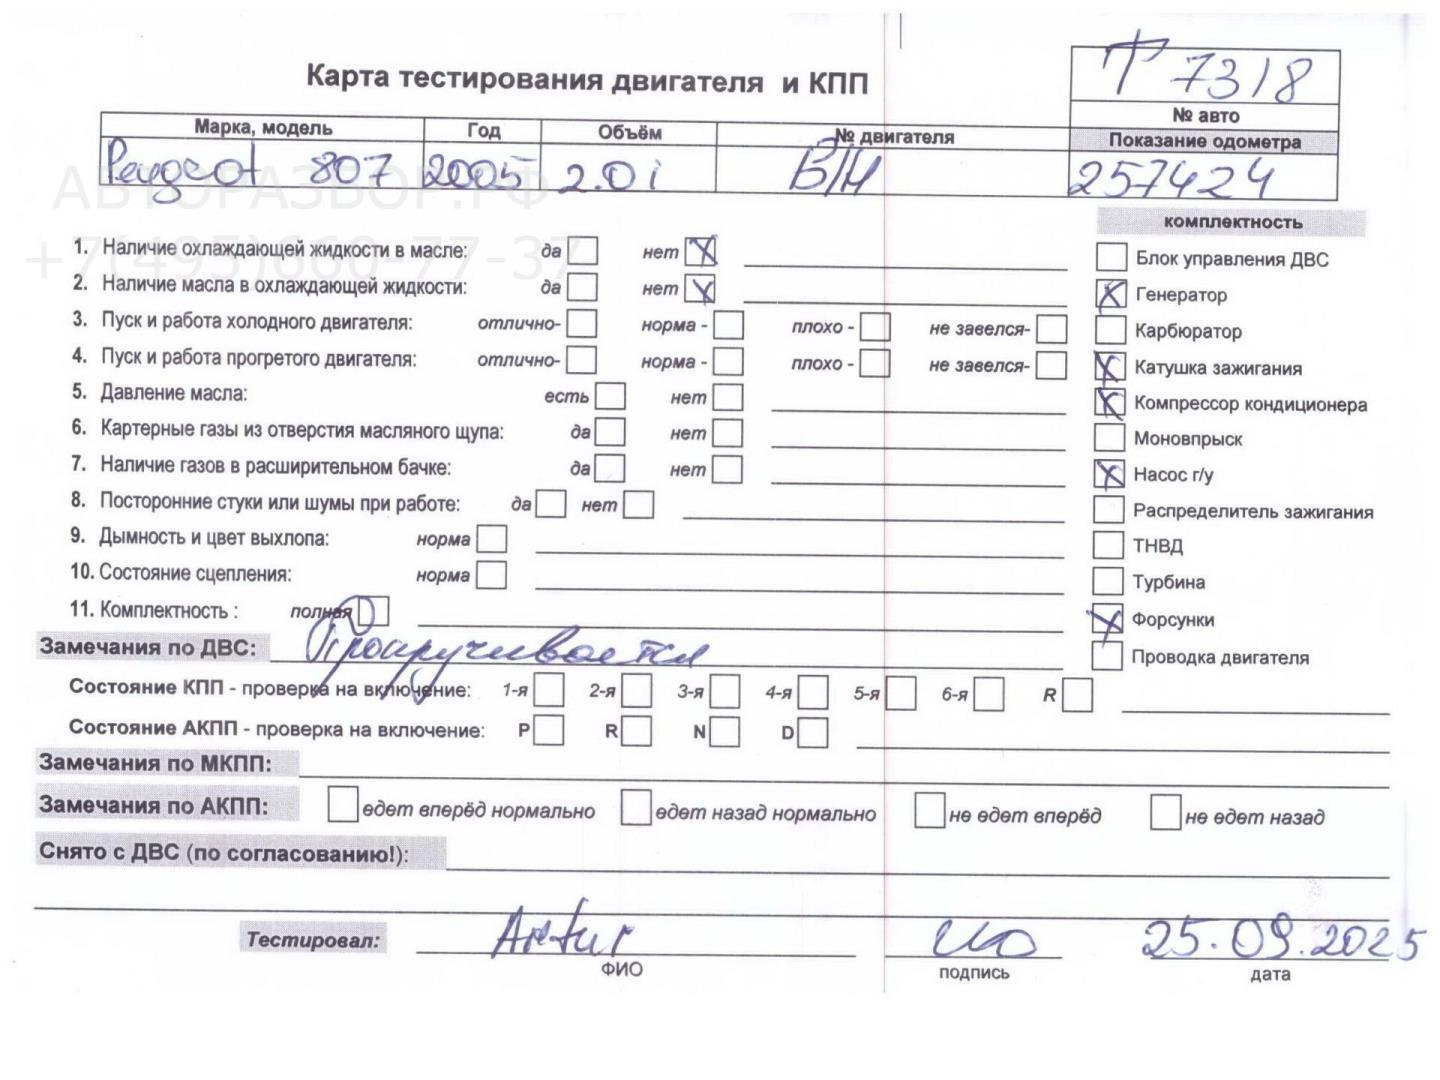 Карта тестирования двигателя и КПП
Т 7318
№ авто
Марка, модель Год Объём № двигателя Показание одометра
Peugeot 807 2005 2.0i Б/Н 257424
АВТОРАЗБОР.РФ
+7(495)660-77-37
комплектность
1. Наличие охлаждающей жидкости в масле: да нет X
Блок управления ДВС
2. Наличие масла в охлаждающей жидкости: да нет X
X Генератор
3. Пуск и работа холодного двигателя: отлично- норма - плохо - не завелся-
Карбюратор
4. Пуск и работа прогретого двигателя: отлично- норма - плохо - не завелся-
X Катушка зажигания
5. Давление масла: есть нет
X Компрессор кондиционера
6. Картерные газы из отверстия масляного щупа: да нет
Моновпрыск
7. Наличие газов в расширительном бачке: да нет
X Насос г/у
8. Посторонние стуки или шумы при работе: да нет
Распределитель зажигания
9. Дымность и цвет выхлопа: норма
ТНВД
10. Состояние сцепления: норма
Турбина
11. Комплектность : полная
X Форсунки
Замечания по ДВС: Прокручивается
Проводка двигателя
Состояние КПП - проверка на включение: 1-я 2-я 3-я 4-я 5-я 6-я R
Состояние АКПП - проверка на включение: P R N D
Замечания по МКПП:
Замечания по АКПП: едет вперёд нормально едет назад нормально не едет вперёд не едет назад
Снято с ДВС (по согласованию!):
Тестировал: Artur 25.09.2025
ФИО подпись дата